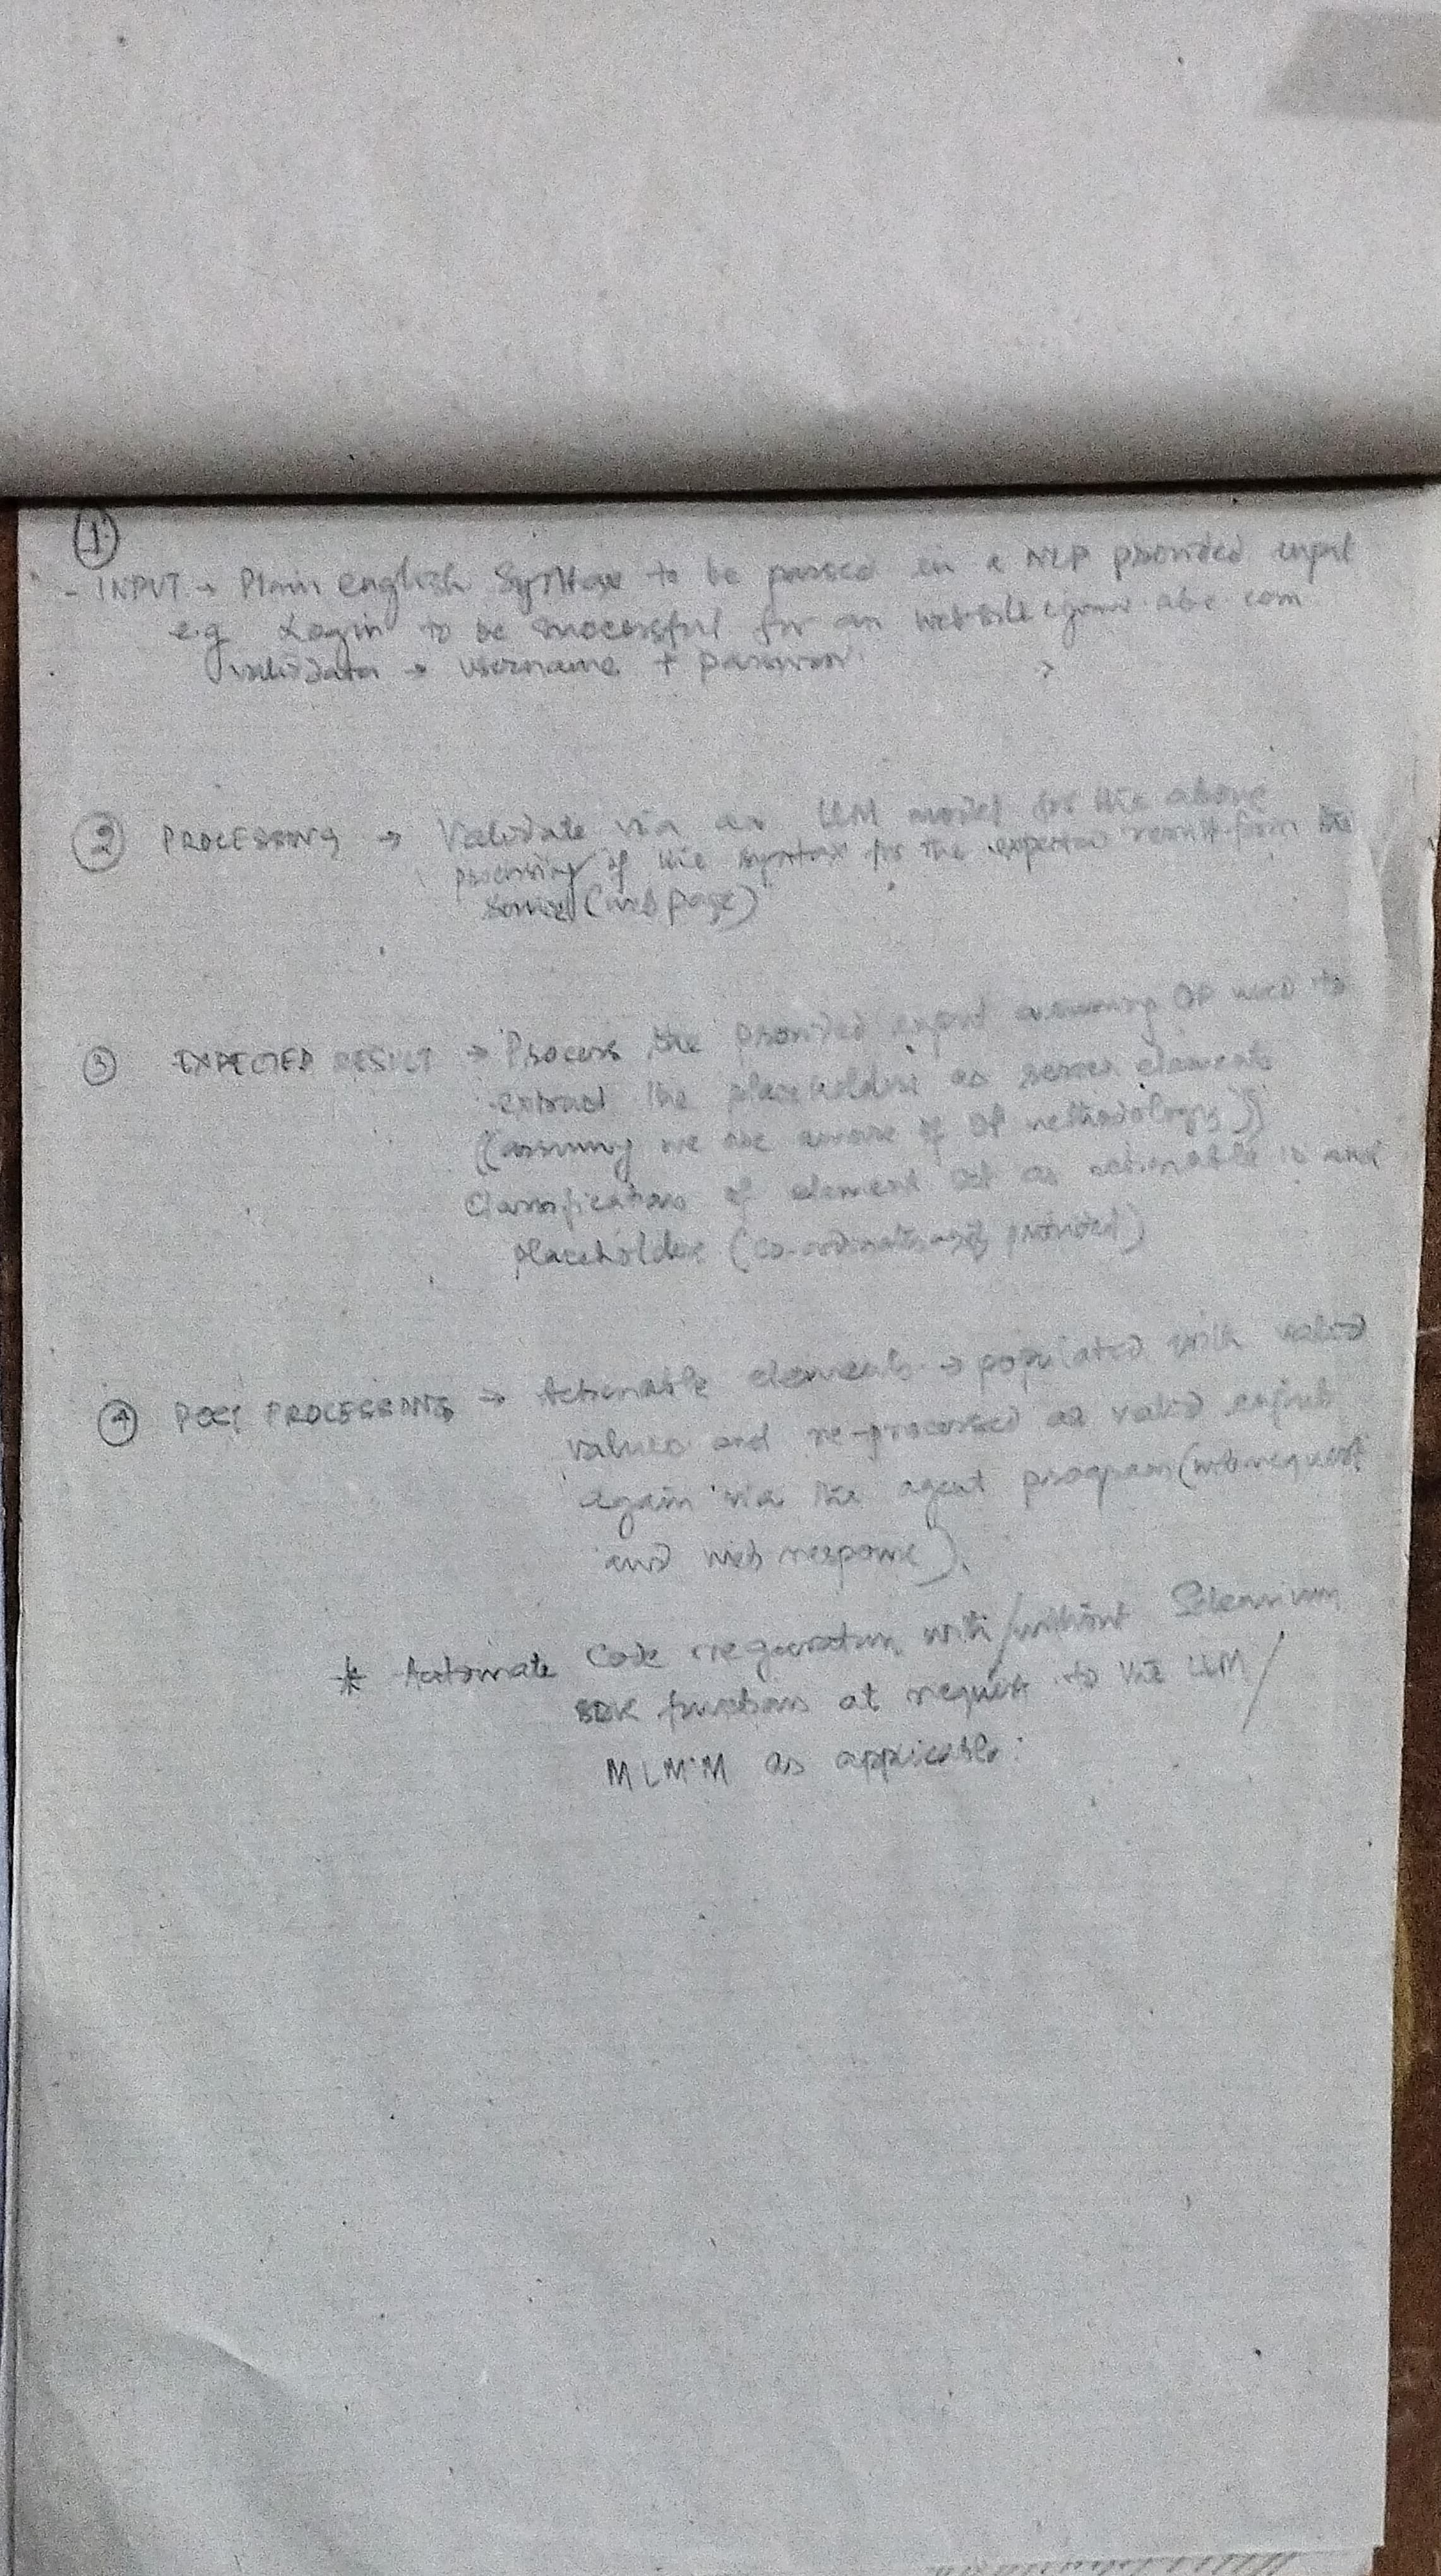 1
- INPUT → Plain english Syntax to be parsed in a NLP provided input
e.g Login to be successful for an website abc com
validata → username +
2 PROCESSING → Validate via an LLM model for the above
processing of the syntax for the expected result from the
(web page)
3 EXPECTED RESULT → Process the provided input assuming OP used to
extract the placeholders as screen elements
((assuming we are aware of OP methodology))
Classification of element as actionable and
placeholder (co-ordinates provided)
4 POST PROCESSING → Actionable elements → populated with valid
values and re-processed as valid
again via the agent program (web request
and web response).
* Automate Code with/without Selenium
SDK functions at request to the LLM/
MLMM as applicable.